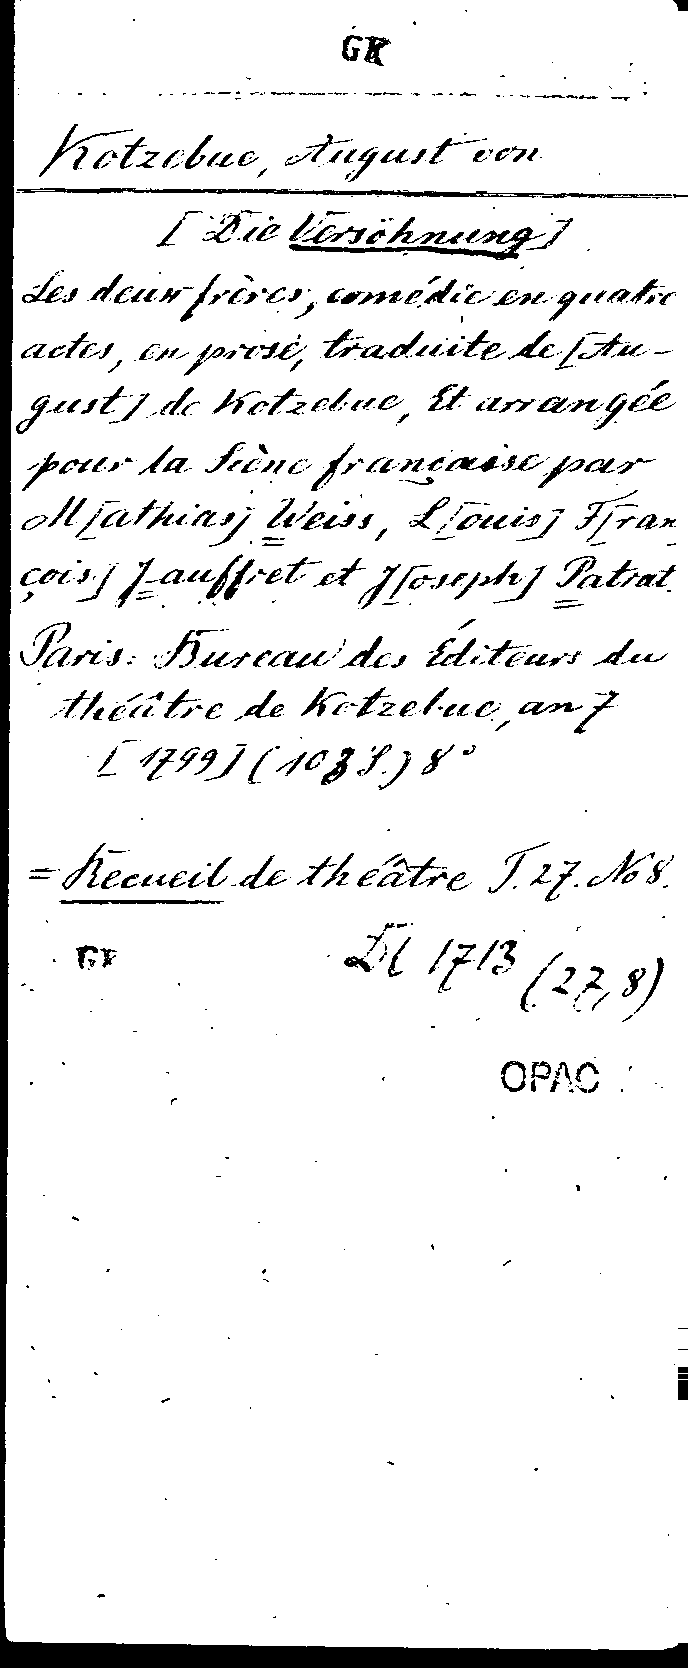 GK
Kotzebue, August von
[Die Versöhnung]
Les deux frères, comédie en quatre
actes, en prose, traduite de [Au-
gust] de Kotzebue, Et arrangée
pour la Scène française par
M[athias] Weiss, L[ouis] F[ran
çois] Jauffret et J[oseph] Patrat.
Paris: Bureau des Éditeurs du
théâtre de Kotzebue, an 7
[1799] (103 S.) 8°
= Recueil de théâtre T. 27. No 8.
GK
1713 (27,8)
OPAC